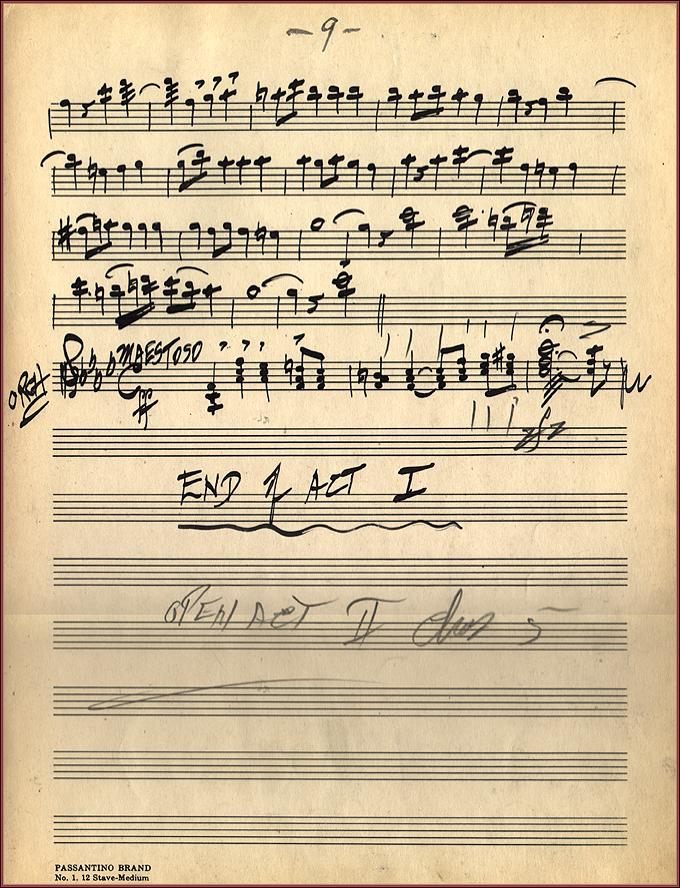 -9-
ORCH
MAESTOSO
ff
sfz
END of ACT I
OPEN ACT II
PASSANTINO BRAND
No. 1. 12 Stave-Medium